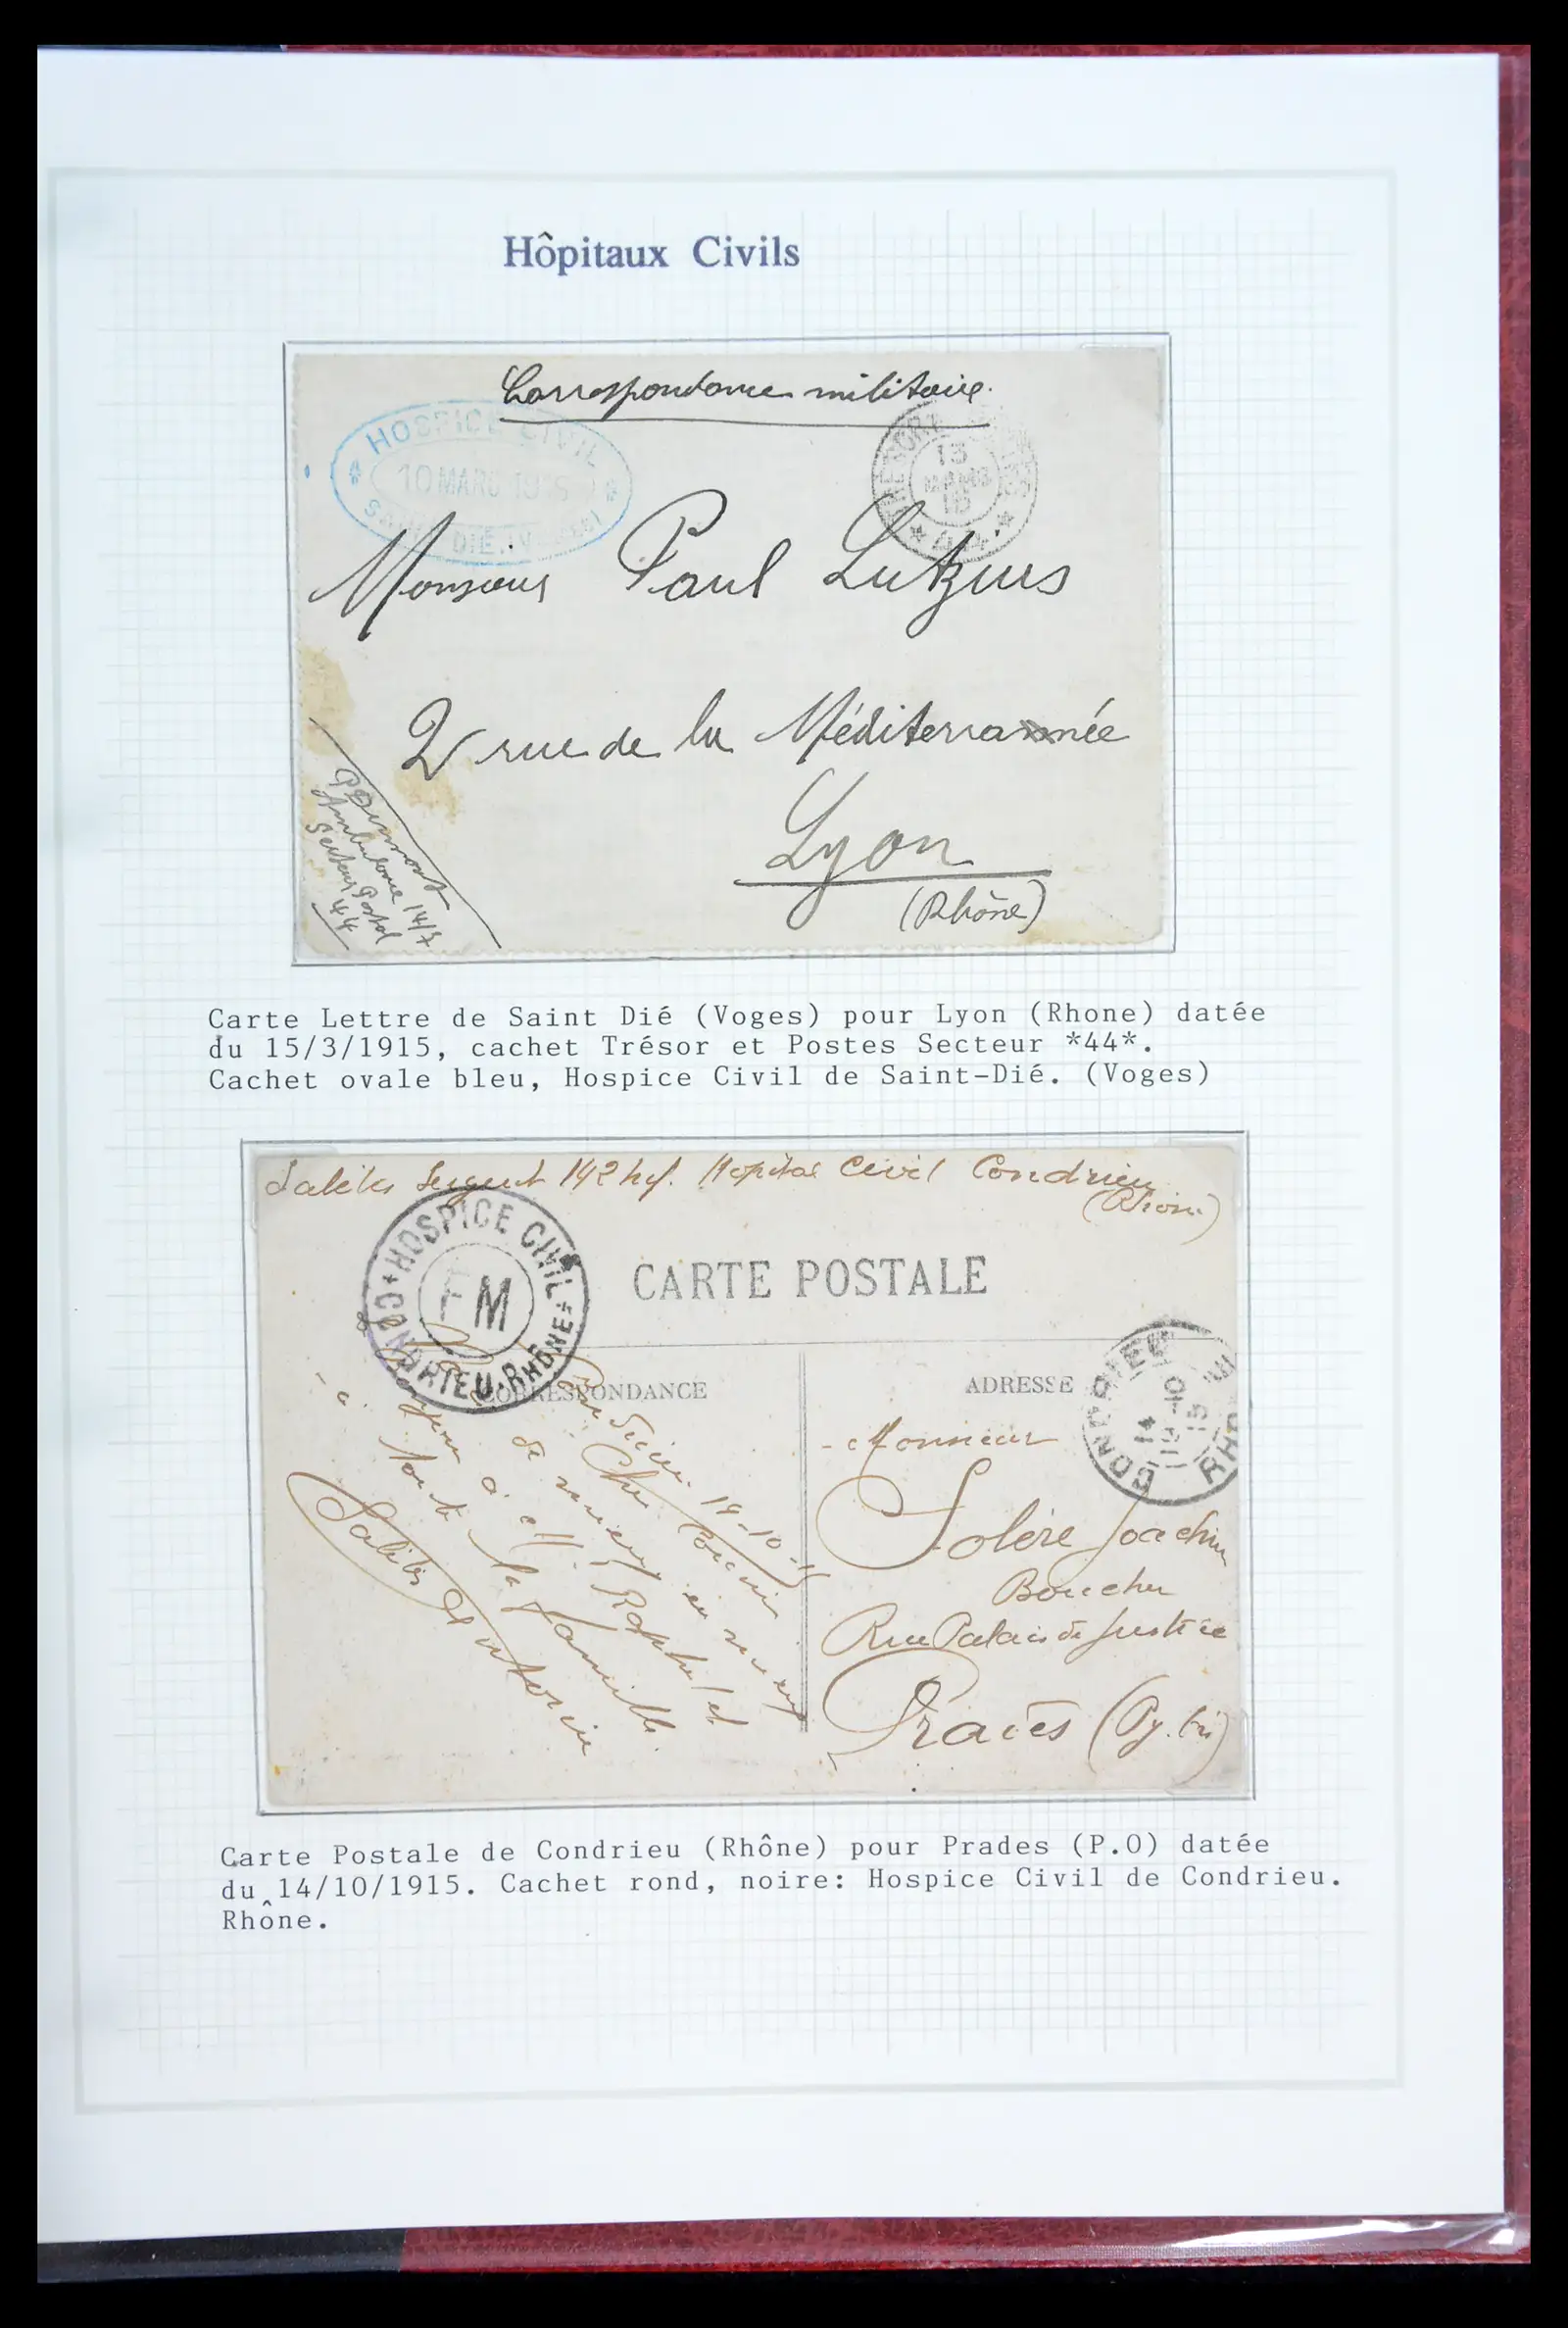 Hôpitaux Civils
Correspondance militaire.
HOSPICE CIVIL
10 MARS 1915
DIÉ
13
MARS
15
*44*
Monsieur Paul
2 rue de la Méditerranée
Lyon
(Rhône)
Ambulance 14/7
Secteur Postal
44
Carte Lettre de Saint Dié (Voges) pour Lyon (Rhone) datée
du 15/3/1915, cachet Trésor et Postes Secteur *44*.
Cachet ovale bleu, Hospice Civil de Saint-Dié. (Voges)
Sergent 142 Hôpital Civil Condrieu
(Rhône)
HOSPICE CIVIL
FM
CONDRIEU. RHÔNE
CARTE POSTALE
CORRESPONDANCE
ADRESSE
CONDRIEU
14
-10
15
RHÔNE
Condrieu 14-10-15
Cher
de
à M. Raphael et
à toute la famille.
Monsieur
Solère Joachim
Boucher
Rue Palais de Justice
Prades (Py. Or)
Carte Postale de Condrieu (Rhône) pour Prades (P.O) datée
du 14/10/1915. Cachet rond, noire: Hospice Civil de Condrieu.
Rhône.